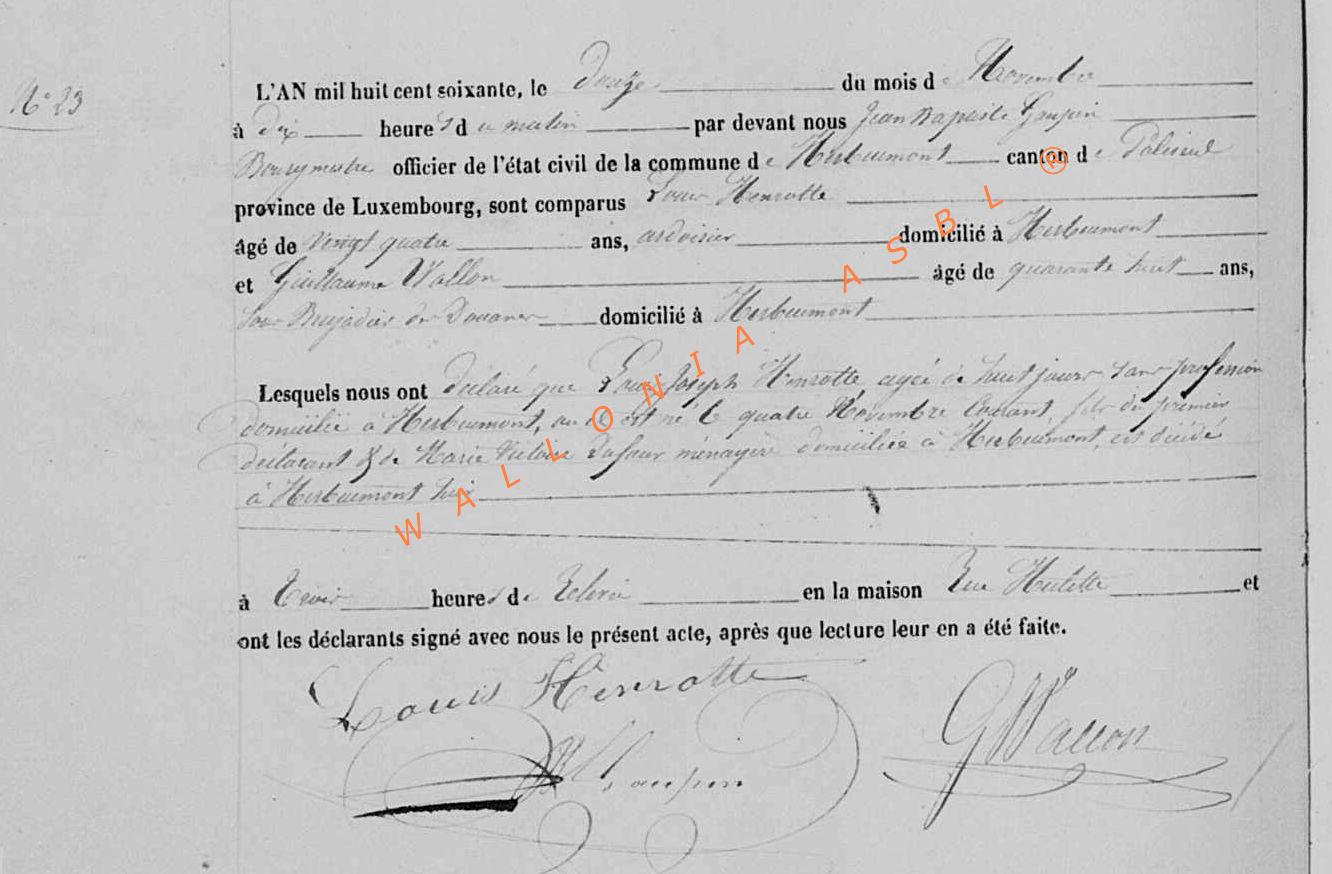 N° 23
L'AN mil huit cent soixante, le douze du mois de Novembre
à dix heures du matin par devant nous Jean Baptiste Gaupin
Bourgmestre officier de l'état civil de la commune de Herbeumont canton de Paliseul
province de Luxembourg, sont comparus Louis Henrotte
âgé de vingt quatre ans, ardoisier domicilié à Herbeumont
et Guillaume Wallon âgé de quarante huit ans,
Sous Brigadier des Douanes domicilié à Herbeumont
Lesquels nous ont déclaré que Louis Joseph Henrotte, agé de huit jours sans profession
domicilié à Herbeumont, où il est né le quatre Novembre Courant, fils du premier
déclarant & de Marie Victoire Dufour ménagère domiciliée à Herbeumont, est décédé
à Herbeumont hier
à trois heures de relevée en la maison Rue et
ont les déclarants signé avec nous le présent acte, après que lecture leur en a été faite.
Louis Henrotte
GWallon
Gaupin
WALLONIA ASBL ®